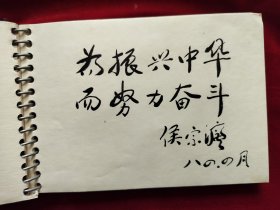 为振兴中华
而努力奋斗
侯宗濂
八四.四月